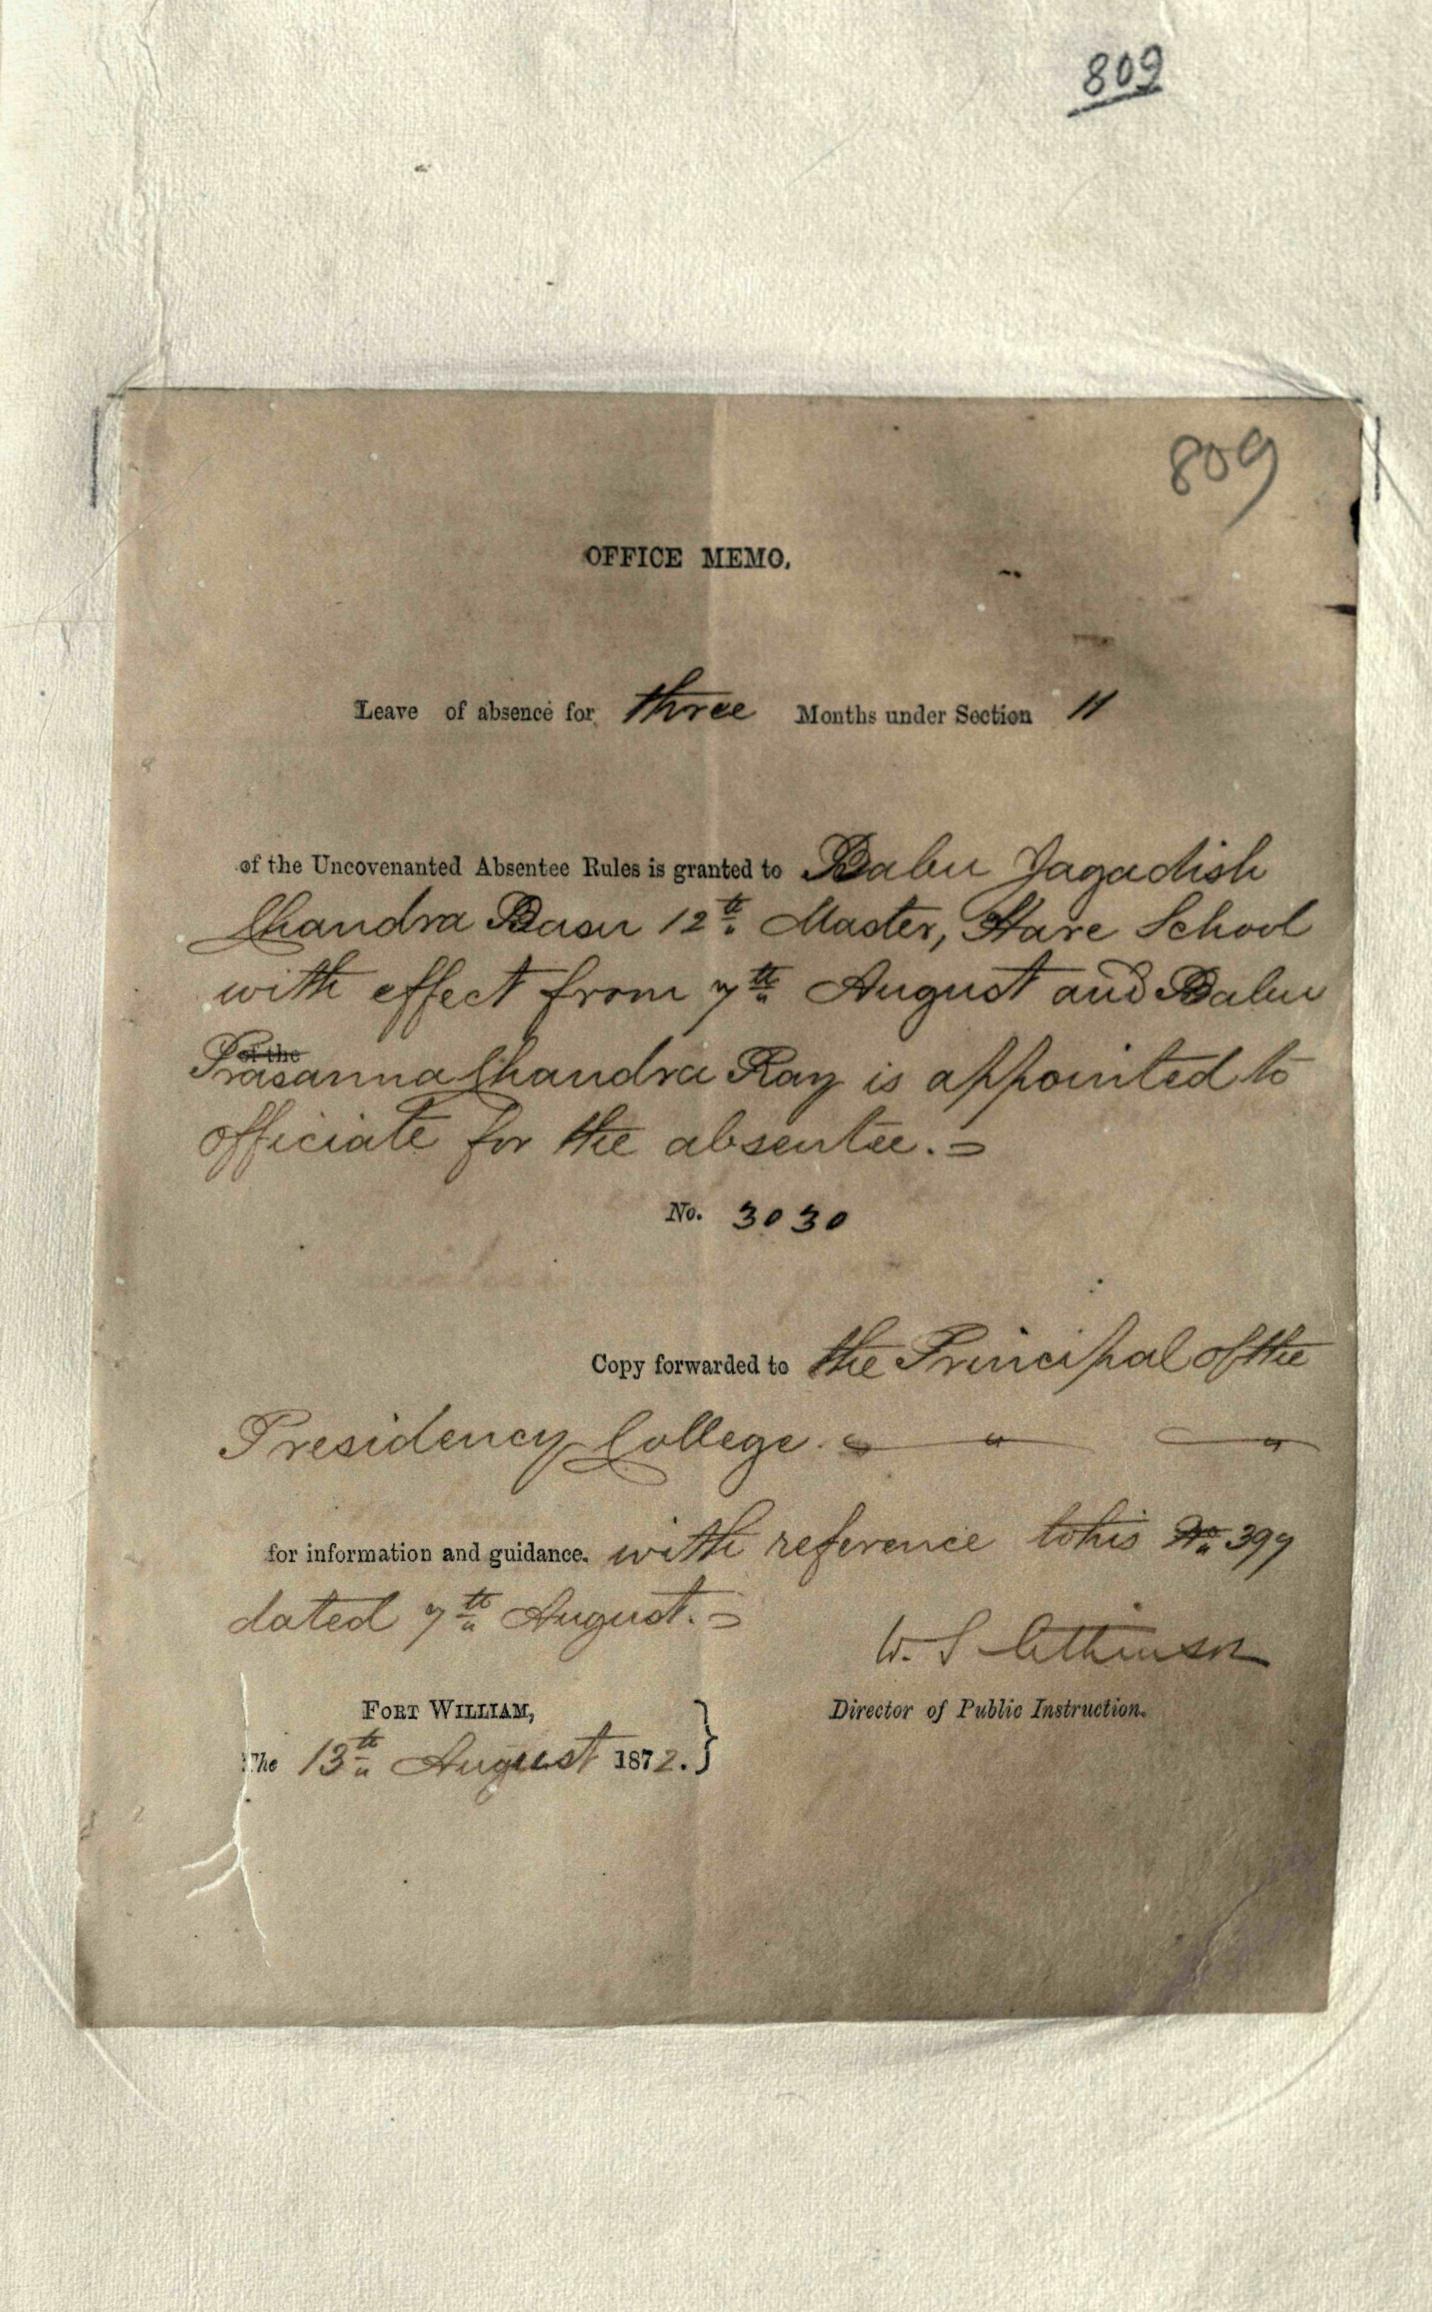 809
809
OFFICE MEMO.
Leave of absence for three Months under Section 11
of the Uncovenanted Absentee Rules is granted to Babu Jagadish
Chandra Basu 12th Master, Hare School
with effect from 7th August and Babu
of the
Prasanna Chandra Ray is appointed to
officiate for the absentee. =
No. 3030
Copy forwarded to the Principal of the
Presidency College.
for information and guidance. with reference to his No 397
dated 7th August. =
W. S Atkinson
FORT WILLIAM,
Director of Public Instruction.
The 13th August 1872.}